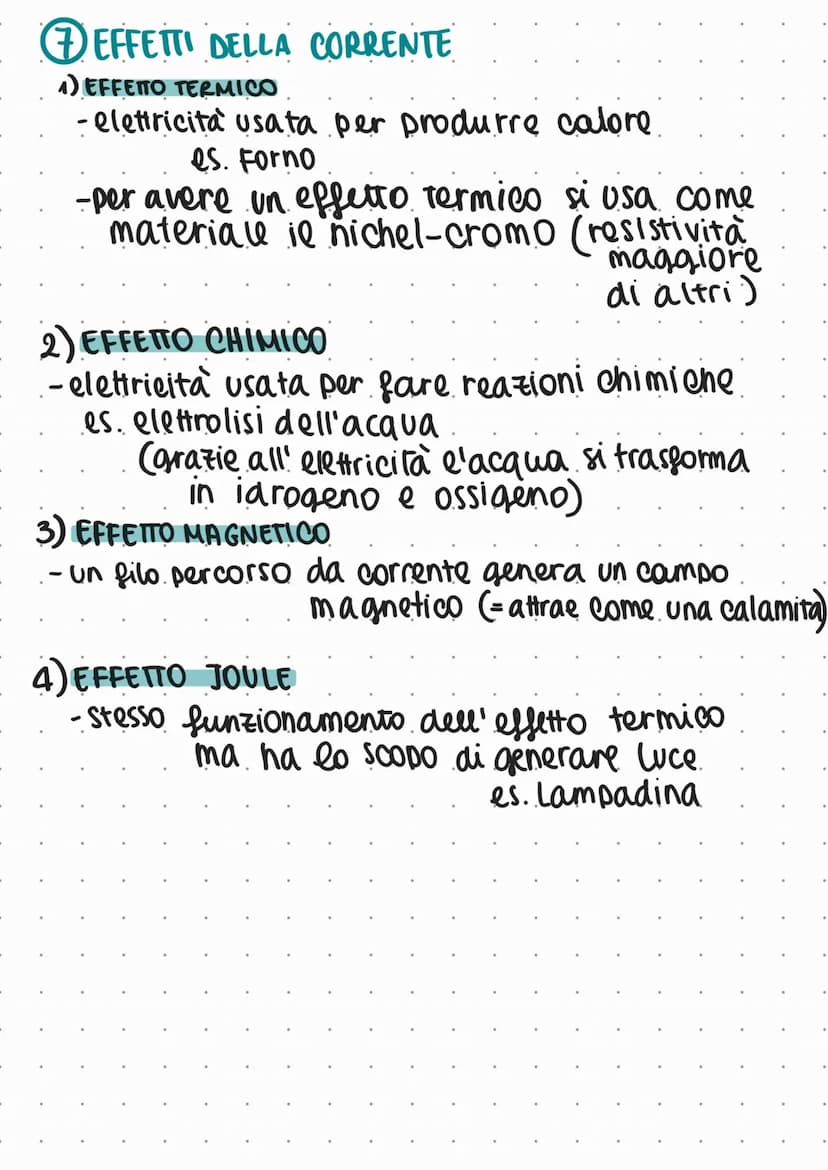 7 EFFETTI DELLA CORRENTE
1) EFFETTO TERMICO
- elettricità usata per produrre calore
es. Forno
- per avere un effetto termico si usa come
materiale il nichel-cromo (resistività
maggiore
di altri)
2) EFFETTO CHIMICO
- elettricità usata per fare reazioni chimiche
es. elettrolisi dell'acqua
(grazie all' elettricità l'acqua si trasforma
in idrogeno e ossigeno)
3) EFFETTO MAGNETICO
- un filo percorso da corrente genera un campo
magnetico (= attrae come una calamita)
4) EFFETTO JOULE
- stesso funzionamento dell' effetto termico
ma ha lo scopo di generare luce
es. Lampadina